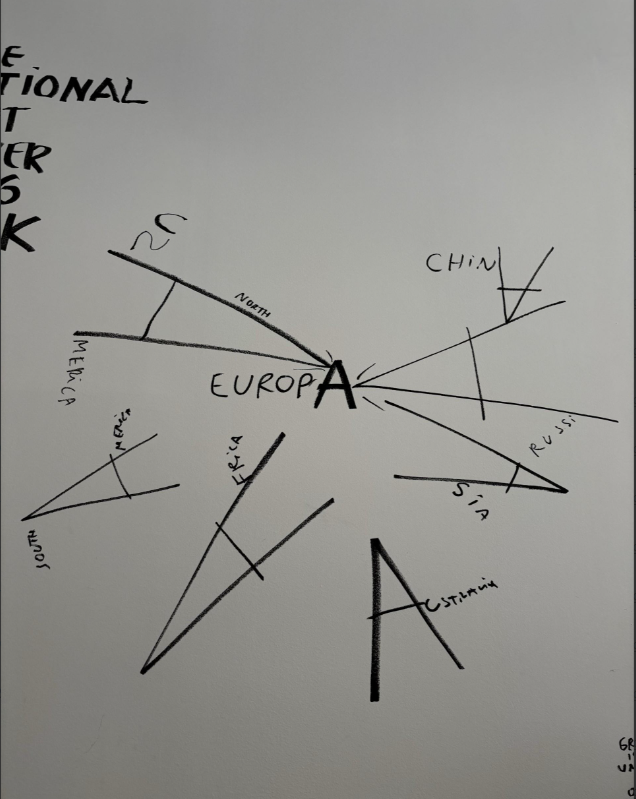 E
TIONAL
T
ER
G
K
US
NORTH
MERICA
EUROPA
CHIN
RUSSI
SIA
MERICA
SOUTH
FRICA
USTRALIA
GR